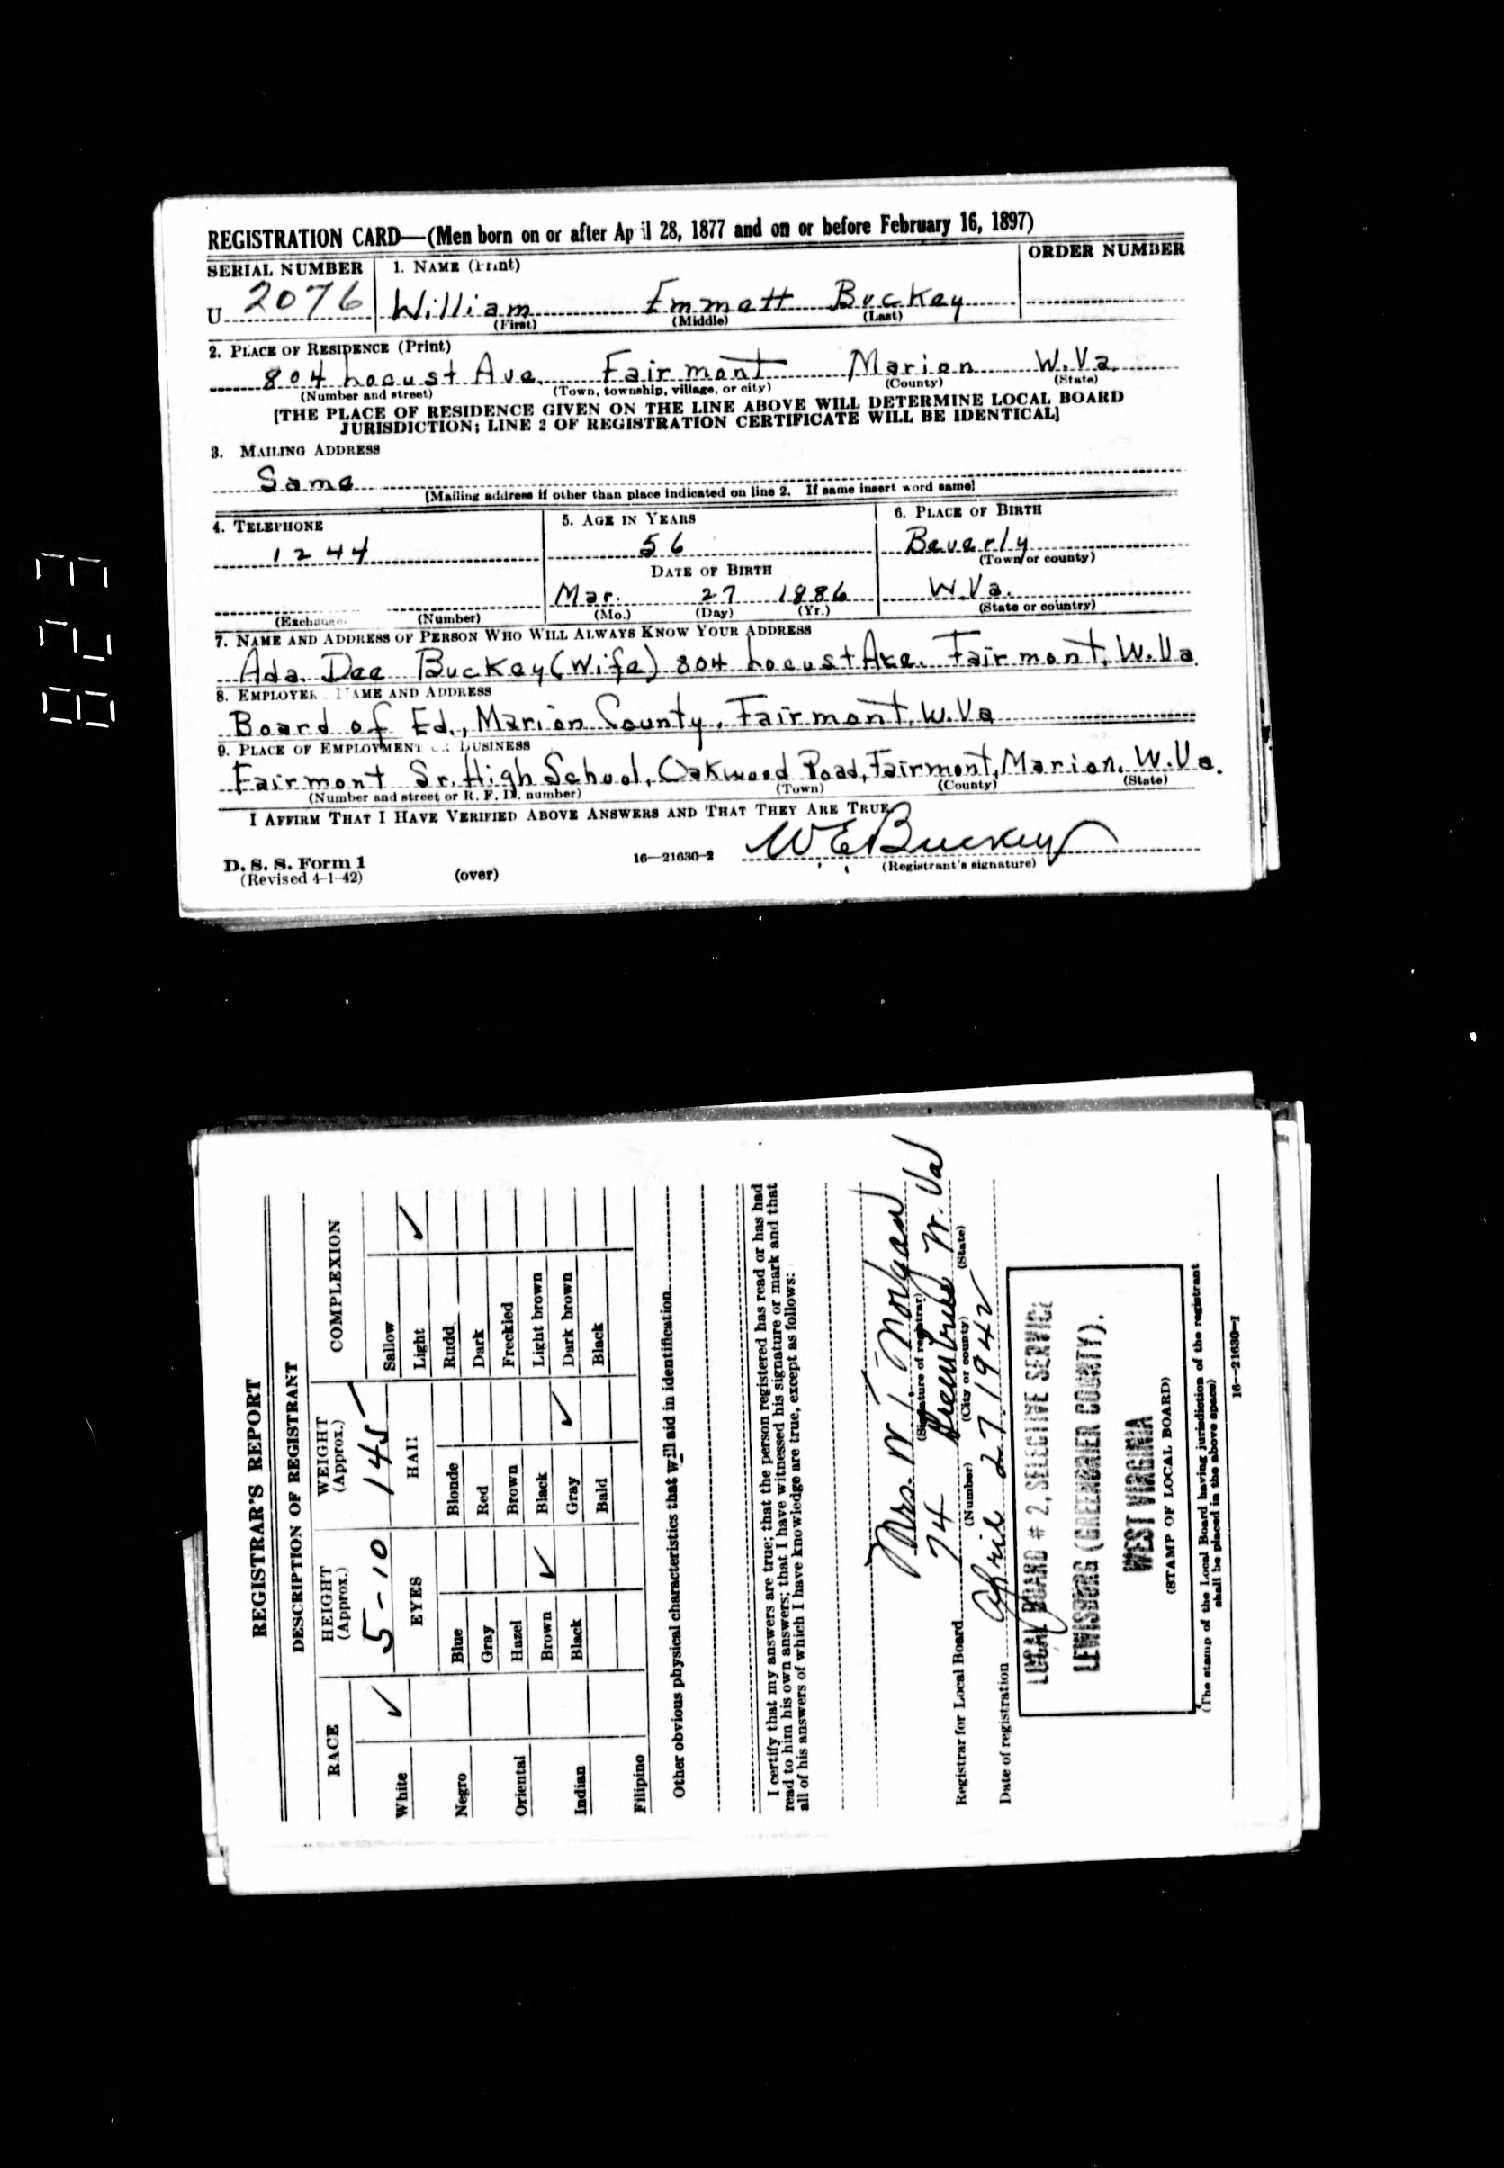 REGISTRATION CARD—(Men born on or after Ap il 28, 1877 and on or before February 16, 1897)
SERIAL NUMBER 1. NAME (Print) ORDER NUMBER
U 2076 William Emmett Buckey
(First) (Middle) (Last)
2. PLACE OF RESIDENCE (Print)
804 Locust Ave Fairmont Marion W.Va.
(Number and street) (Town, township, village, or city) (County) (State)
[THE PLACE OF RESIDENCE GIVEN ON THE LINE ABOVE WILL DETERMINE LOCAL BOARD
JURISDICTION; LINE 2 OF REGISTRATION CERTIFICATE WILL BE IDENTICAL]
3. MAILING ADDRESS
Same
[Mailing address if other than place indicated on line 2. If same insert word same]
4. TELEPHONE 5. AGE IN YEARS 6. PLACE OF BIRTH
1244 56 Beverly
(Town or county)
DATE OF BIRTH
Mar. 27 1886 W.Va.
(Exchange) (Number) (Mo.) (Day) (Yr.) (State or country)
7. NAME AND ADDRESS OF PERSON WHO WILL ALWAYS KNOW YOUR ADDRESS
Ada Dee Buckey (Wife) 804 Locust Ave. Fairmont, W.Va.
8. EMPLOYER NAME AND ADDRESS
Board of Ed., Marion County, Fairmont, W.Va
9. PLACE OF EMPLOYMENT OR BUSINESS
Fairmont Sr. High School, Oakwood Road, Fairmont, Marion, W.Va.
(Number and street or R. F. D. number) (Town) (County) (State)
I AFFIRM THAT I HAVE VERIFIED ABOVE ANSWERS AND THAT THEY ARE TRUE
W E Buckey
D. S. S. Form 1
(Revised 4-1-42) (over) 16—21630-2 (Registrant's signature)
REGISTRAR'S REPORT
DESCRIPTION OF REGISTRANT
RACE HEIGHT (Approx.) WEIGHT (Approx.) COMPLEXION
5-10 145
White ✓ EYES HAIR Sallow
Light ✓
Negro Blue Blonde Rudd
Gray Red Dark
Oriental Hazel Brown Freckled
Brown ✓ Black Light brown
Indian Black Gray ✓ Dark brown
Bald Black
Filipino
Other obvious physical characteristics that will aid in identification
I certify that my answers are true; that the person registered has read or has had
read to him his own answers; that I have witnessed his signature or mark and that
all of his answers of which I have knowledge are true, except as follows:
Mrs. W. T. Morgan
(Signature of registrar)
Registrar for Local Board 74 Greenbrier W. Va
(Number) (City or county) (State)
Date of registration April 27, 1942
LOCAL BOARD # 2, SELECTIVE SERVICE
LEWISBURG (GREENBRIER COUNTY),
WEST VIRGINIA
(STAMP OF LOCAL BOARD)
(The stamp of the Local Board having jurisdiction of the registrant
shall be placed in the above space)
16—21630-1